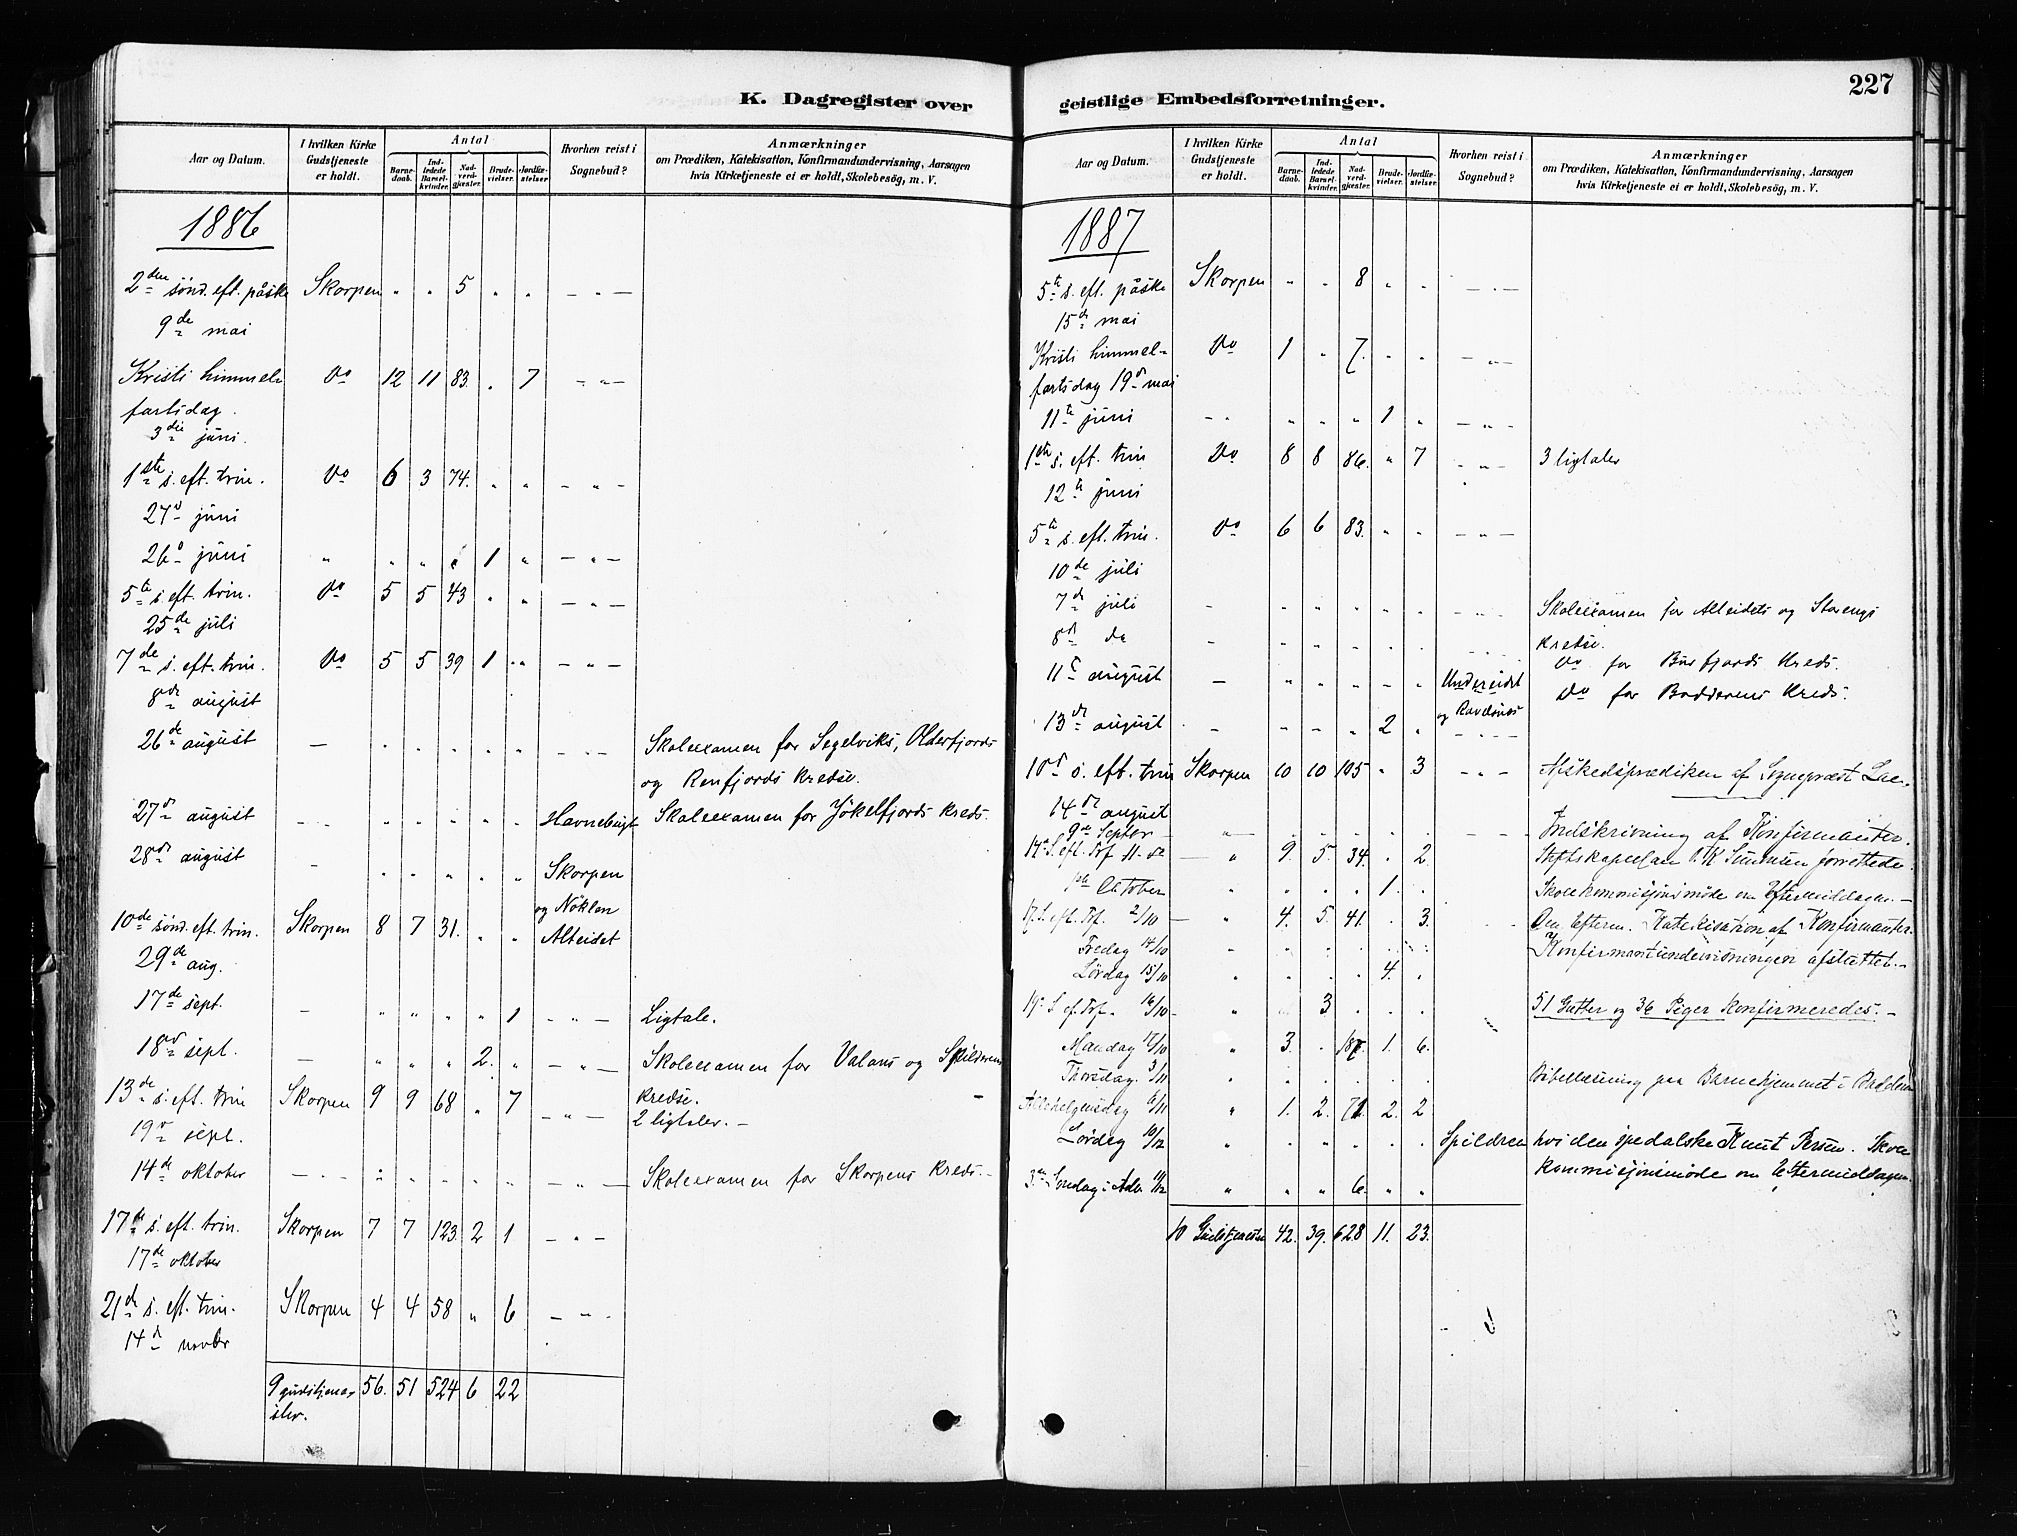 K. Dagregister over
Aar og Datum.
I hvilken Kirke Gudstjeneste er holdt.
Antal
Barne-daab.
Ind-ledede Barsel-kvinder.
Nad-verd-gjester.
Brude-vielser.
Jordfæ-stelser.
Hvorhen reist i Sognebud?
Anmærkninger
om Prædiken, Katekisation, Konfirmandundervisning, Aarsagen
hvis Kirketjeneste ei er holdt, Skolebesög, m. V.
1886
2den sönd. eft. påske Skorpen " " 5 " " – " –
9de mai
Kristi himmel- Do 12 11 83. " 7 – " –
fartsdag.
3die juni.
1ste s. eft. trin. Do 6 3 74. " " – " –
27d juni
26d juni " " " " 1 " – " –
5te s. eft. trin. Do 5 5 43 " " – " –
25de juli
7de s. eft. trin. Do 5 5 39 1 " – " –
8de august
26de august – " " " " " – " – Skoleexamen for Segelviks, Olderfjords
og Renfjords kredse.
27d august – " – " " " " " Havnebugt Skoleexamen for Jökelfjords kreds.
28de august – " " " " " Skorpen
og Nöklan
10de sönd. eft. trin. Skorpen 8 7 31. " " Alteidet
29de aug.
17de sept. – " " " " 1 – " – Ligtale.
18de sept. – " " " 2. " – " – Skoleexamen for Valans og Spilderens
13de s. eft. trin Skorpen 9 9 68 " 7 – " – kredse.
19d sept. 2 ligtaler. –
14de oktober – " – " " " " " – " – Skoleexamen for Skorpens kreds. –
17de s. eft. trin. Skorpen 7 7 123. 2 1 – " –
17de oktober
21de s. eft. trin. Skorpen 4 4 58 " 6 – " –
14d novbr
9 gudstjene- 56. 51 524 6 22
ster.
geistlige Embedsforretninger.
227
Aar og Datum.
I hvilken Kirke Gudstjeneste er holdt.
Antal
Barne-daab.
Ind-ledede Barsel-kvinder.
Nad-verd-gjester.
Brude-vielser.
Jordfæ-stelser.
Hvorhen reist i Sognebud?
Anmærkninger
om Prædiken, Katekisation, Konfirmandundervisning, Aarsagen
hvis Kirketjeneste ei er holdt, Skolebesög, m. V.
1887
5te s. eft. påske Skorpen " " 8 " " – " –
15de mai
Kristi himmel- Do 1 " 7. " " – " –
fartsdag 19d mai
11te juni – " " " " 1 " – " –
1ste s. eft. trin Do 8 8 86. " 7 – " – 3 ligtaler
12te juni
5te s. eft. trin. Do 6 6 83. " " – " –
10de juli
7de juli – " " " " " – " – Skoleexamen for Alteidets og Storengs
8de do – " " " " " kredse.
Do for Burfjords kreds.
11te august – " " " – " Undereidet Do for Badderens kreds.
og Ravelsnæs
13de august – " " " 2 "
10de s. eft. trin Skorpen 10 10 105 " 3 – " – Afskedsprædiken af Sognepræst
14de august
9de Septbr – " – Indskrivning af Konfirmanter.
14de S. eft. Tref 11. do – " 9. 5. 34. " 2. Stiftskapellan forrettede.
1ste October " " " " 1. Skolekommisjonsmöde om Eftermiddagen. –
17. S. eft. Tref. 2/10 – " 4. 5. 41. " 3. Om Efterm. Katekisation af Konfirmanter.
Fredag 14/10 Konfirmantundervisningen afsluttet. –
Lördag 15/10 " " " " 4. "
19de S. ef. Tref. 16/10 – " 3 51 Gutter og 36 Piger konfirmeredes. –
Mandag 17/10 " 3. 187. 1. 6.
Thorsdag. 3/11 " Bibellæsning paa Barnehjemmet i Badderen
Allehelgensdag 6/11 " 1. 2. 71. 2. 2
Lördag 10/12 " Spildren hvi den spedalske Knut Persen. Skole
kommisjonsmöde om Eftermiddagen
3de Söndag i Adv. 11/12 " " " 6. " "
10 Gudstjenester 42. 39. 628 11. 23.